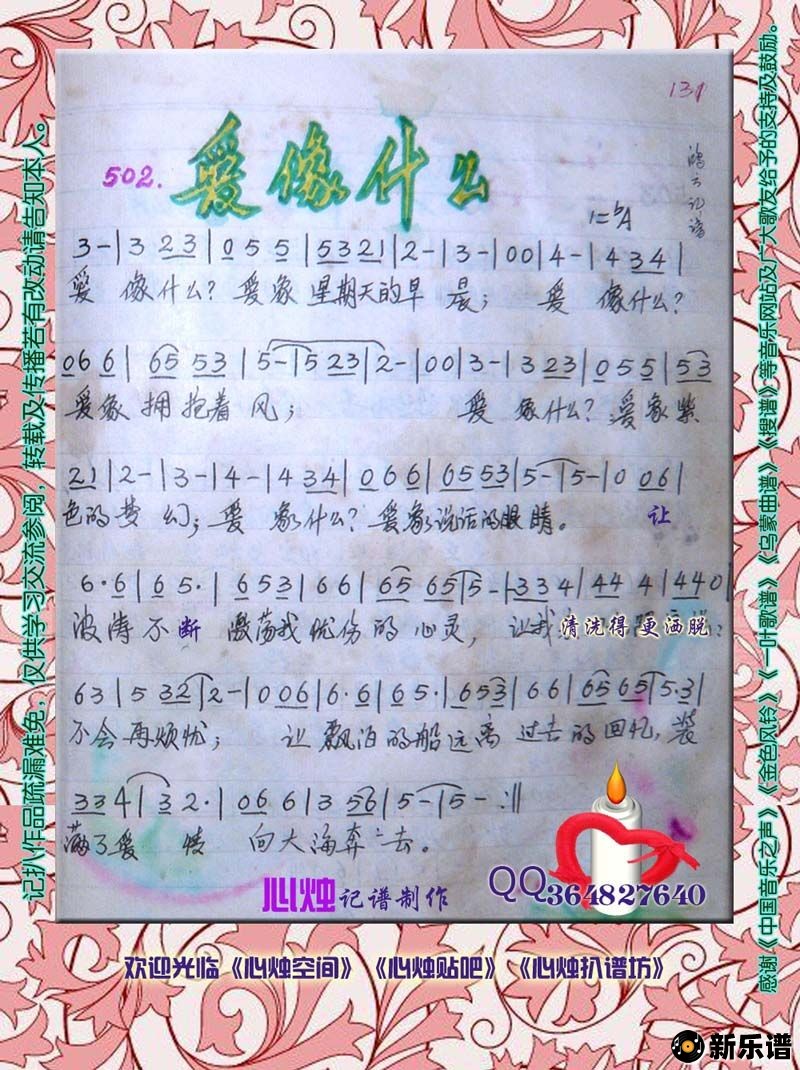 131
502. 爱像什么
鸿云记谱
1=ᵇA
3-|3 23|0 5 5|5321|2-|3-|00|4-|4 34|
爱 像什么？爱象星期天的早 晨； 爱 像什么？
06 6|65 53|5-|5 23|2-|00|3-|3 23|0 5 5|53
爱象 拥抱着 风； 爱 象什么？爱象紫
21|2-|3-|4-|4 34|0 6 6|0553|5-|5-|0 06|
色的梦 幻；爱 象什么？爱象说话的眼睛。 让
6·6|6 5·|6 53|6 6|65 65|5-|33 4|44 4|440|
波涛不断 激荡我忧伤的 心灵，让我 清洗得更洒脱：
63|5 32|2-|0 06|6·6|65·|653|66|65 65|5·3|
不会再烦忧； 让 飘泊的船远离 过去的回忆，装
33 4|3 2·|06 6|3 56|5-|5-:||
满了爱 情 向大海奔 去。
心烛记谱制作
QQ364827640
记扒作品疏漏难免，仅供学习交流参阅，转载及传播若有改动请告知本人。
感谢《中国音乐之声》《金色风铃》《一叶歌谱》《乌蒙曲谱》《搜谱》等音乐网站及广大歌友给予的支持及鼓励。
欢迎光临《心烛空间》《心烛贴吧》《心烛扒谱坊》
新乐谱